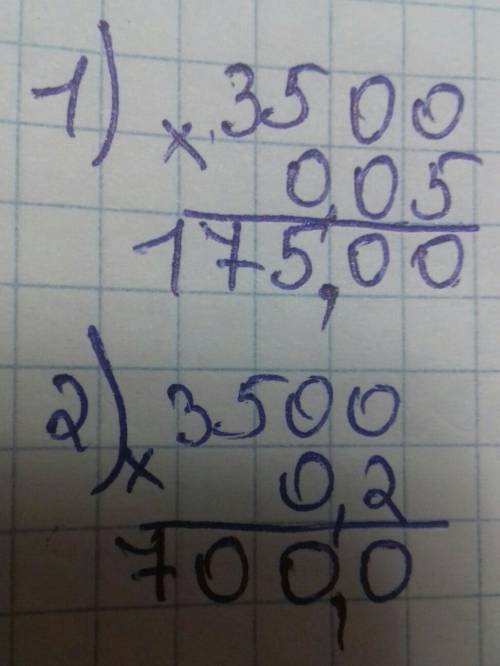 1) × 3500
0,05
175,00
2) × 3500
0,2
700,0